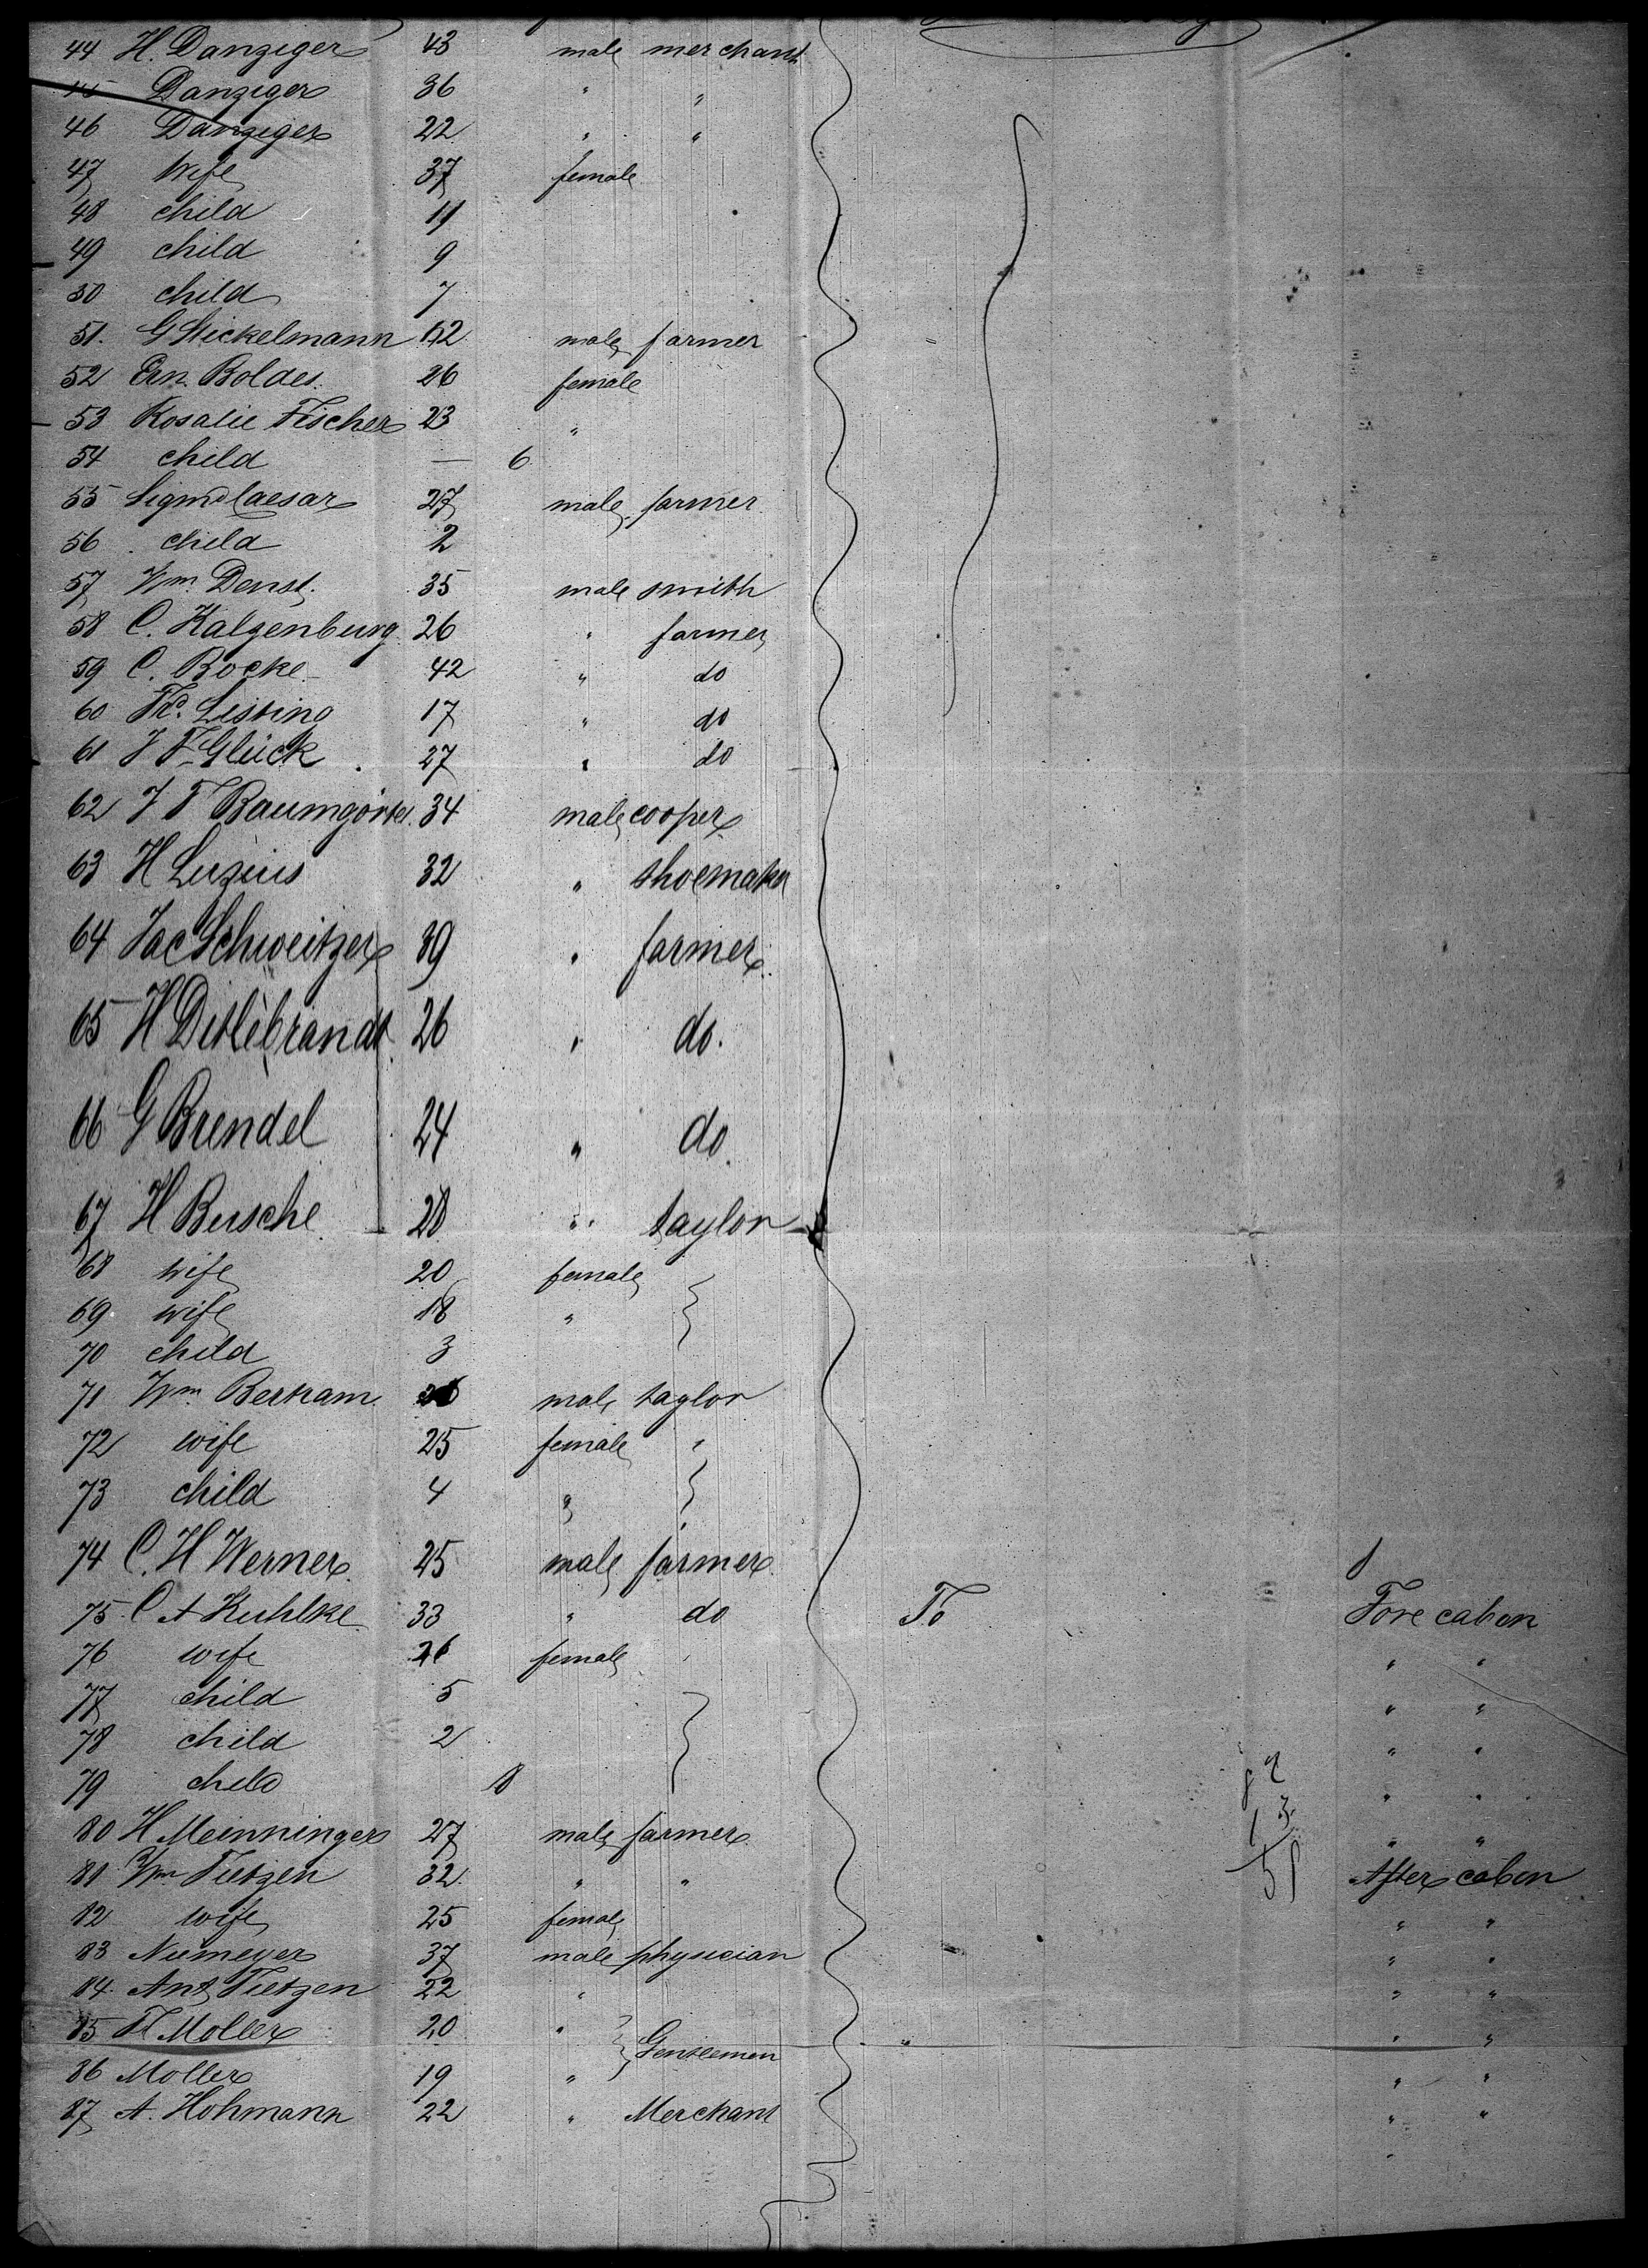 44 H. Danziger 43 male merchant
45 Danziger 36 " "
46 Danziger 22 " "
47 Wife 37 female
48 child 11
49 child 9
50 child 7
51. G Stickelmann 62 male farmer
52 Ern. Boldes. 26 female
53 Rosalie Fischer 23 "
54 child — 6
55 Sigmd Caesar 27 male farmer
56 child 2
57 Wm. Denst. 35 male smith
58 C. Kalgenburg 26 " farmer
59 C. Bocke 42 " do
60 Fd. Listing 17 " do
61 J F Glück 27 " do
62 J F Baumgörtel. 34 male cooper
63 H Luzius 32 " shoemaker
64 Jac Schweitzer 39 " farmer
65 H Ditlebrandt 26 " do.
66 G Brendel 24 " do.
67 H Busche 28 " taylor
68 wife 20 female
69 wife 18 "
70 child 3
71 Wm. Bertram male taylor
72 wife 25 female "
73 child 4 "
74 C. H Werner 25 male farmer
75 C A Kuhlke 33 " do To Fore cabin
76 wife 26 female " "
77 child 5 " "
78 child 2 " "
79 child 8 " "
80 H Meinninger 27 male farmer " "
81 Wm Tietzen 32 " " After cabin
82 wife 25 female " "
83 Niemeyer 37 male physician " "
84. Ant Tietzen 22 " " "
85 Fd Moller 20 " Gentlemen " "
86 Moller 19 " " "
87 A. Hohmann 22 " Merchant " "